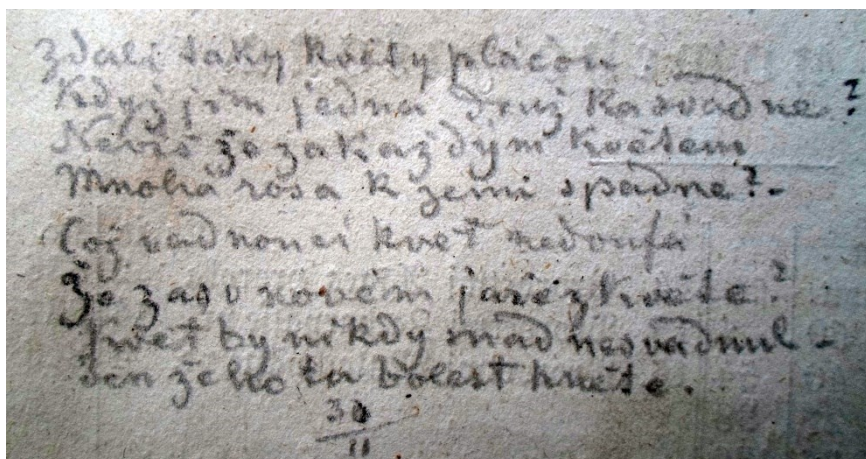 zdali taky květy pláčou.
Když jim jedna družka svadne?
Nevíš že za každým květem
Mnohá rosa k zemi spadne?.
Což vadnoucí květ nedoufá
Že zas v novém jaře zkvěte?
Květ by nikdy snad nesvadnul.
Jen že ho ta bolest hněte.
30
11